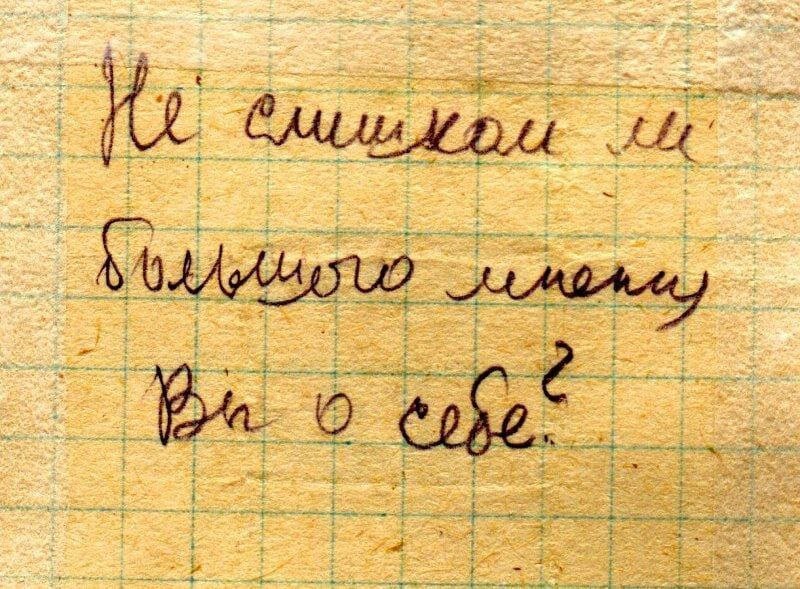 Не слишком ли
большого мнения
Вы о себе?